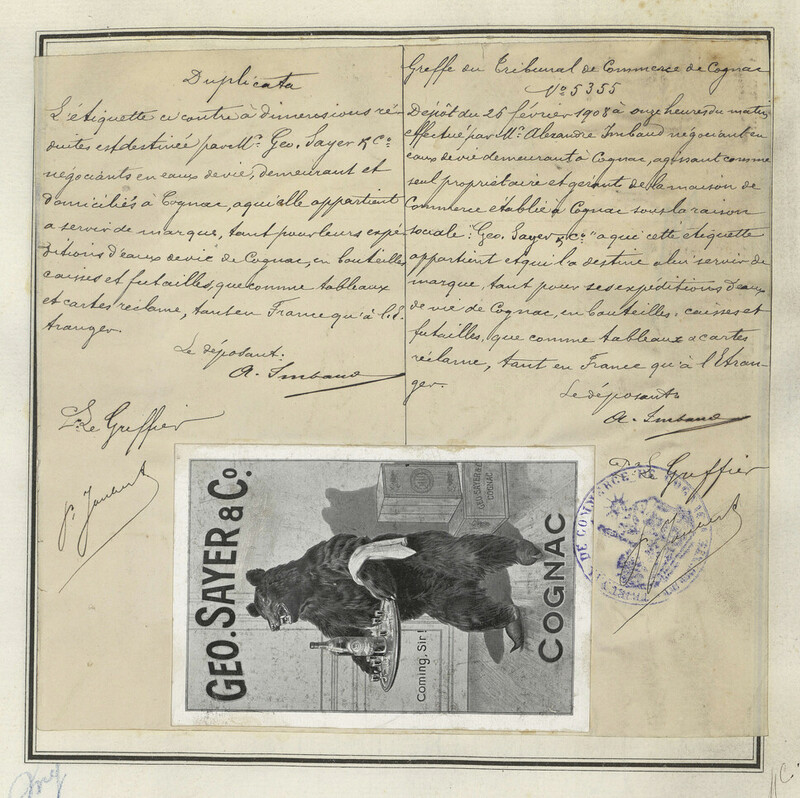 Duplicata
L'étiquette ci contre à dimensions ré-
duites est destinée par M.rs Geo. Sayer & Co
négociants en eaux de vie, demeurant et
domiciliés à Cognac, a qui elle appartient
a servir de marque, tant pour leurs expé-
ditions d'eaux de vie de Cognac, en bouteilles
caisses et futailles, que comme tableaux
et cartes réclame, tant en France qu'à l'É-
tranger.
Le déposant.
A. Imbaud
Le Greffier
Greffe du Tribunal de Commerce de Cognac
No 5355
Dépôt du 26 février 1908 à onze heures du matin
effectué par Mr. Alexandre Imbaud négociant en
eaux de vie demeurant à Cognac, agissant comme
seul propriétaire et gérant de la maison de
Commerce établie à Cognac sous la raison
sociale: "Geo. Sayer & Co" a qui cette etiquette
appartient et qui l'a destine a lui servir de
marque, tant pour ses expéditions d'eaux
de vie de Cognac, en bouteilles, caisses et
futailles, que comme tableaux & cartes
réclame, tant en France qu'à l'Etran-
ger.
Le déposant
A. Imbaud
Greffier
GEO. SAYER & Co.
GEO SAYER &
COGNAC
Coming, Sir!
COGNAC
DE COMMERCE DE